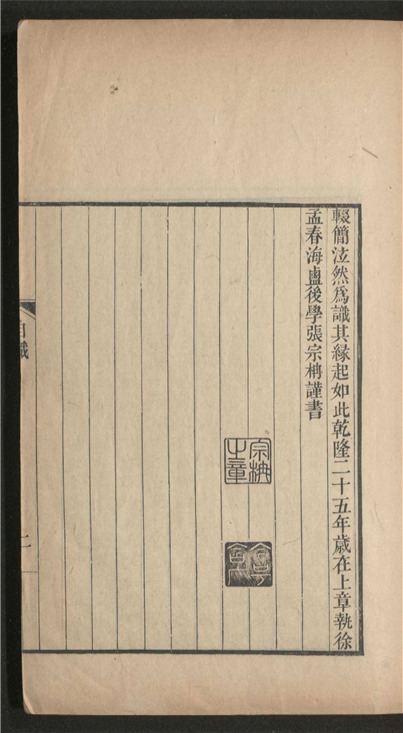 輟簡泫然爲識其緣起如此乾隆二十五年歲在上章執徐
孟春海鹽後學張宗柟謹書
宗柟之章
自識
二